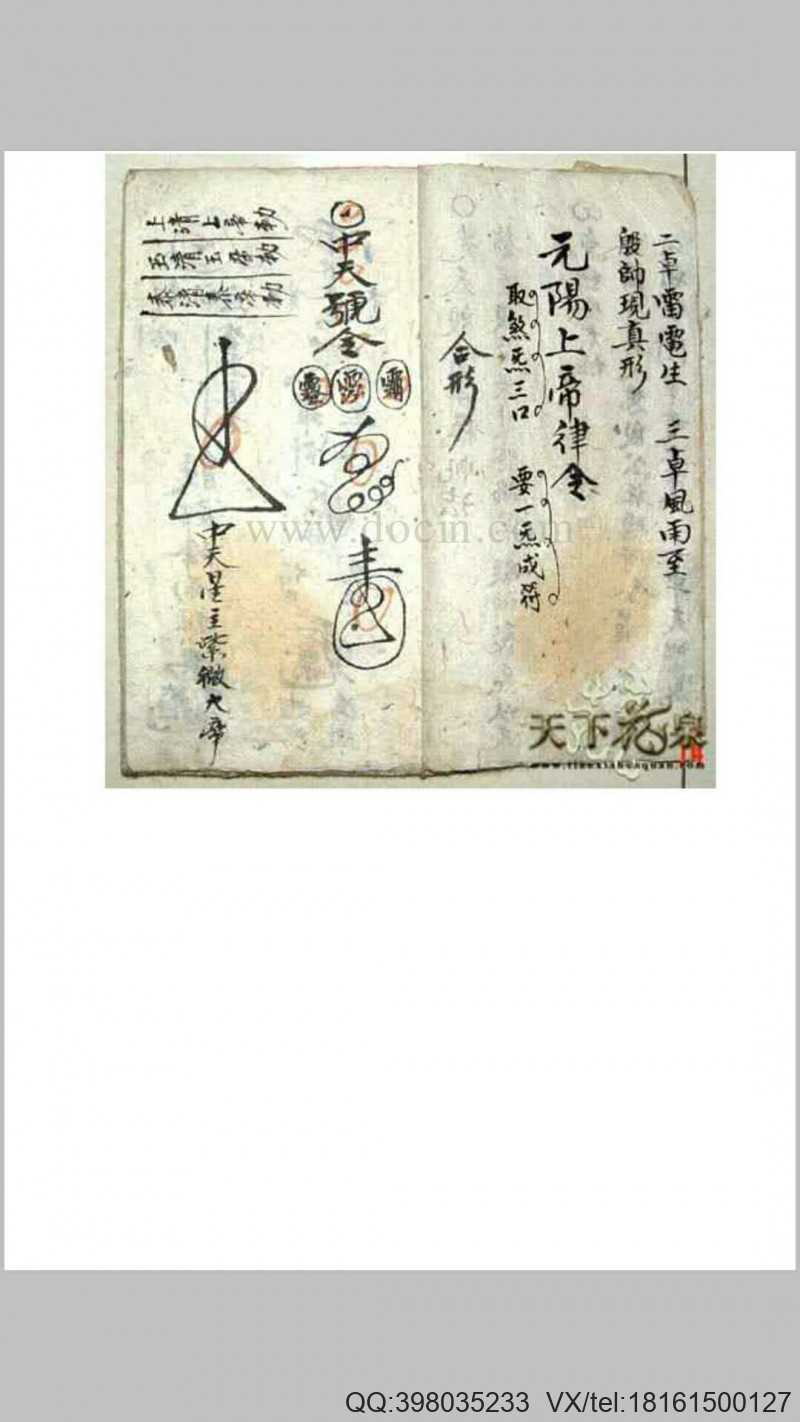 二卓雷電生　三卓風雨至
殷帥現真形
元陽上帝律令
取煞炁三口　要一炁成符
合形
中天號令
中天星主紫微大帝
上清上帝勅
玉清玉帝勅
泰清泰帝勅
www.docin.com
天下花泉
QQ:398035233 VX/tel:18161500127